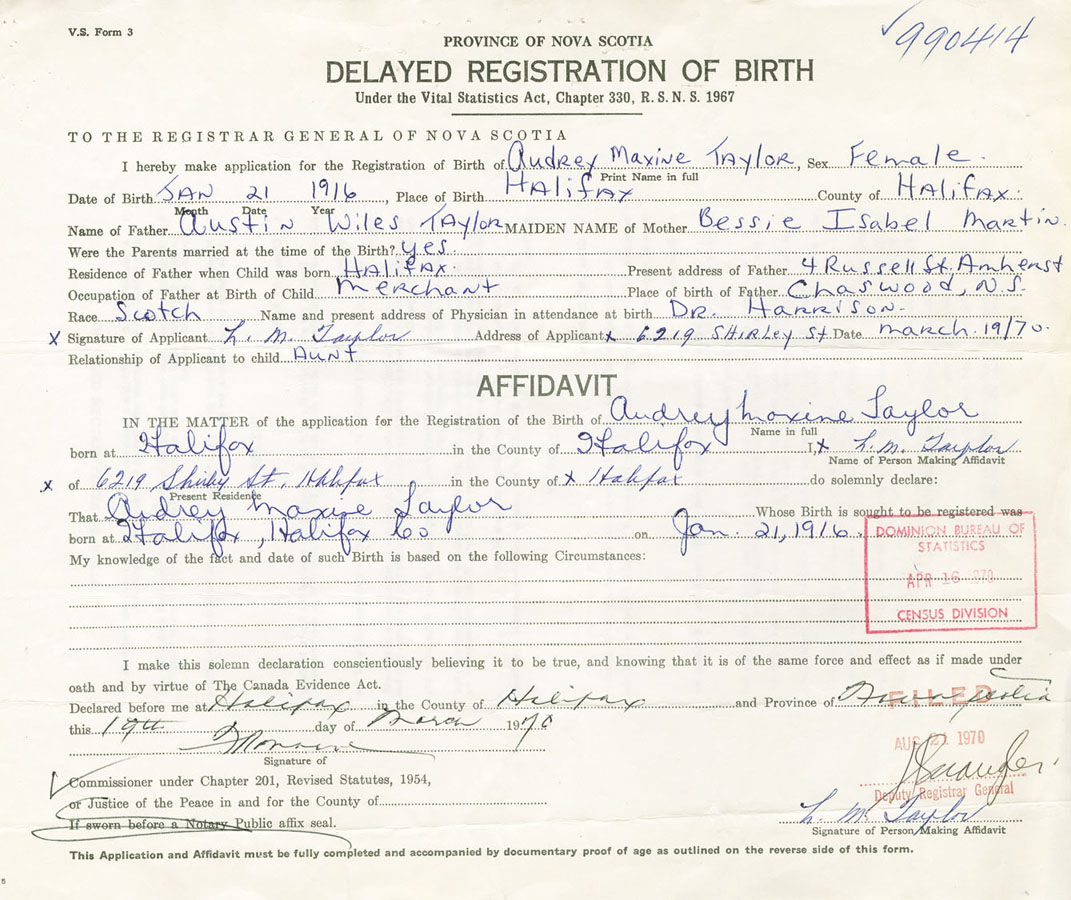 V.S. Form 3
990414
PROVINCE OF NOVA SCOTIA
DELAYED REGISTRATION OF BIRTH
Under the Vital Statistics Act, Chapter 330, R.S.N.S. 1967
TO THE REGISTRAR GENERAL OF NOVA SCOTIA
I hereby make application for the Registration of Birth of Audrey Maxine Taylor, Sex Female.
Print Name in full
Date of Birth Jan 21 1916, Place of Birth Halifax County of Halifax.
Month Date Year
Name of Father Austin Wiles Taylor MAIDEN NAME of Mother Bessie Isabel Martin.
Were the Parents married at the time of the Birth? Yes.
Residence of Father when Child was born Halifax. Present address of Father 4 Russell St. Amherst
Occupation of Father at Birth of Child Merchant Place of birth of Father Chaswood, N.S.
Race Scotch Name and present address of Physician in attendance at birth Dr. Harrison.
x Signature of Applicant L. M. Taylor Address of Applicant x 6219 Shirley St. Date March 19/70.
Relationship of Applicant to child Aunt
AFFIDAVIT
IN THE MATTER of the application for the Registration of the Birth of Audrey Maxine Taylor
Name in full
born at Halifax in the County of Halifax I, x L. M. Taylor
Name of Person Making Affidavit
x of 6219 Shirley St, Halifax in the County of x Halifax do solemnly declare:
Present Residence
That Audrey Maxine Taylor Whose Birth is sought to be registered was
born at Halifax, Halifax Co on Jan. 21, 1916.
DOMINION BUREAU OF
STATISTICS
APR 16 1970
CENSUS DIVISION
My knowledge of the fact and date of such Birth is based on the following Circumstances:
I make this solemn declaration conscientiously believing it to be true, and knowing that it is of the same force and effect as if made under
oath and by virtue of The Canada Evidence Act.
Declared before me at Halifax in the County of Halifax and Province of Nova Scotia
FILED
this 19th day of March 1970
AUG 21 1970
Signature of
Deputy Registrar General
Commissioner under Chapter 201, Revised Statutes, 1954,
or Justice of the Peace in and for the County of
L. M. Taylor
If sworn before a Notary Public affix seal.
Signature of Person Making Affidavit
This Application and Affidavit must be fully completed and accompanied by documentary proof of age as outlined on the reverse side of this form.
5